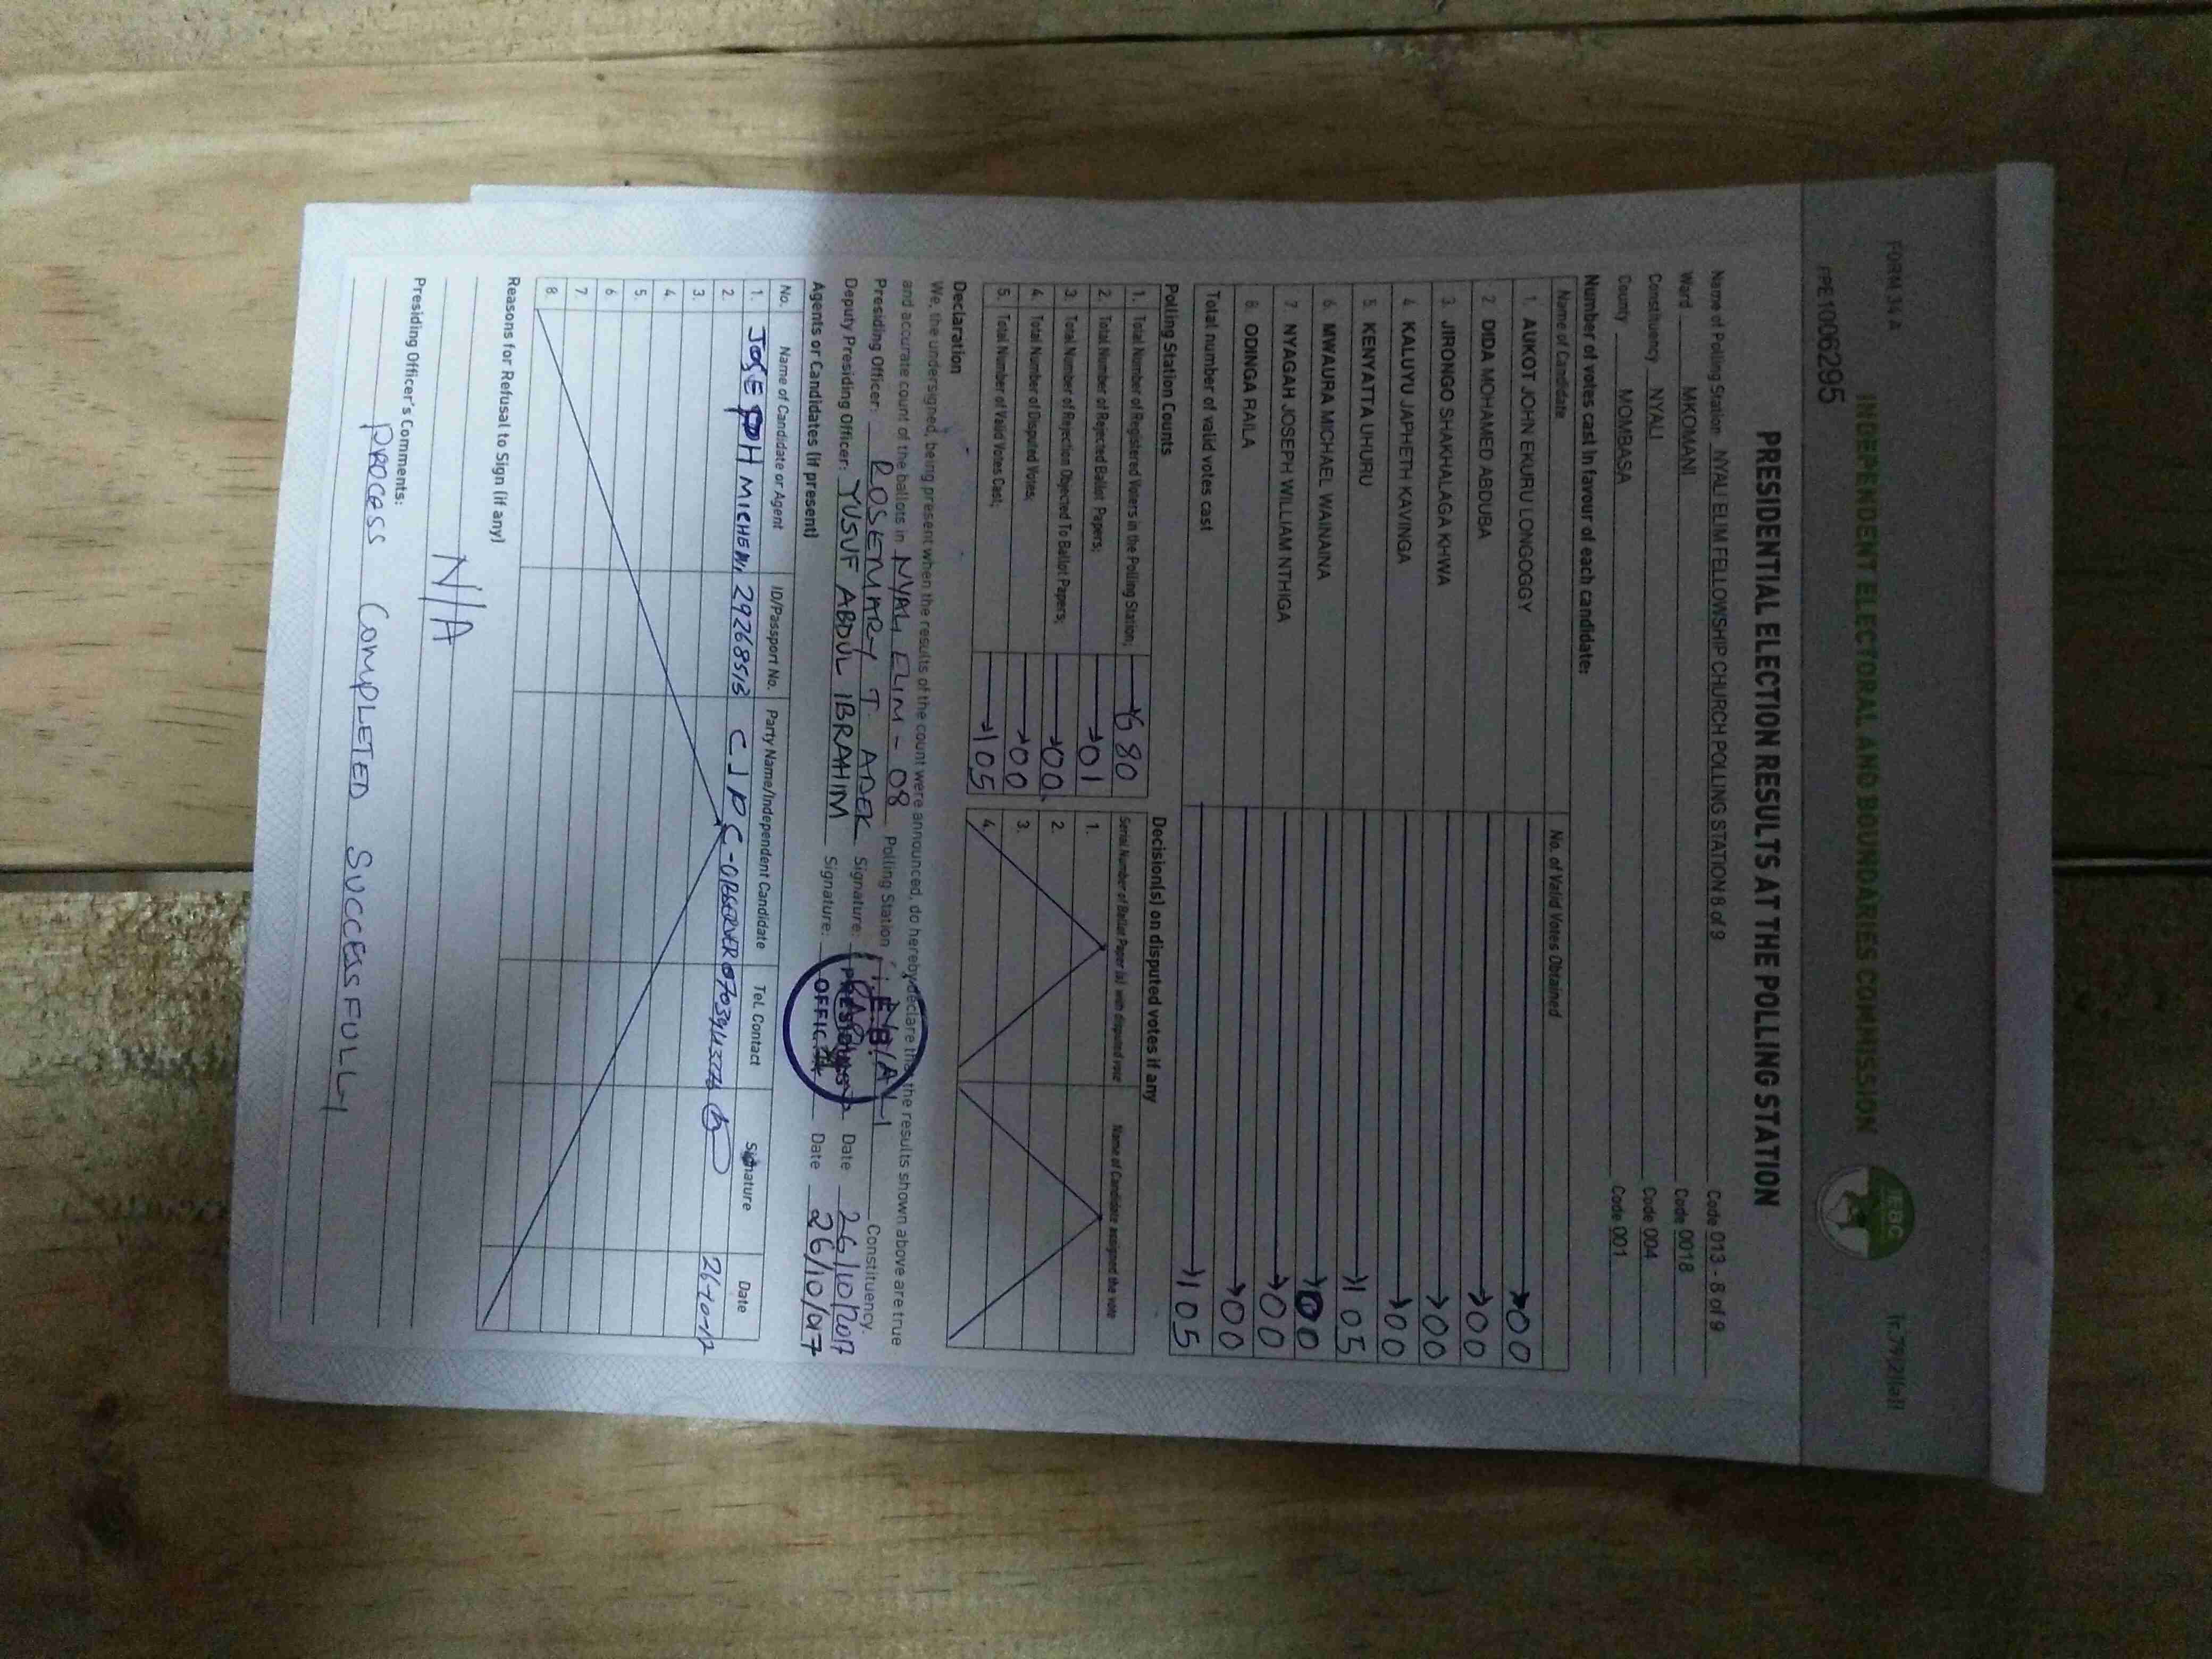 FORM 34 A
r.79(2)(a)
INDEPENDENT ELECTORAL AND BOUNDARIES COMMISSION
IEBC
PE1006295
PRESIDENTIAL ELECTION RESULTS AT THE POLLING STATION
Name of Polling Station NYALI ELIM FELLOWSHIP CHURCH POLLING STATION 8 of 9 Code 013 - 8 of 9
Ward MKOMANI Code 0018
Constituency NYALI Code 004
County MOMBASA Code 001
Number of votes cast in favour of each candidate:
Name of Candidate No. of Valid Votes Obtained
1. AUKOT JOHN EKURU LONGOGGY 00
2. DIDA MOHAMED ABDUBA 00
3. JIRONGO SHAKHALAGA KHWA 00
4. KALUYU JAPHETH KAVINGA 00
5. KENYATTA UHURU 105
6. MWAURA MICHAEL WAINAINA 00
7. NYAGAH JOSEPH WILLIAM NTHIGA 00
8. ODINGA RAILA 00
Total number of valid votes cast 105
Polling Station Counts
1. Total Number of Registered Voters in the Polling Station; 680
2. Total Number of Rejected Ballot Papers; 01
3. Total Number of Rejection Objected To Ballot Papers; 00
4. Total Number of Disputed Votes; 00
5. Total Number of Valid Votes Cast; 105
Decision(s) on disputed votes if any
Serial Number of Ballot Paper (s) with disputed vote Name of Candidate assigned the vote
1.
2.
3.
4.
Declaration
We, the undersigned, being present when the results of the count were announced, do hereby declare that the results shown above are true
and accurate count of the ballots in NYALI ELIM - 08 Polling Station NYALI Constituency.
Presiding Officer: ROSEMARY T. ADEK Signature: Date 26/10/2017
Deputy Presiding Officer: YUSUF ABDUL IBRAHIM Signature: Date 26/10/017
PRESIDING
Agents or Candidates (if present)
No. Name of Candidate or Agent ID/Passport No. Party Name/Independent Candidate Tel. Contact Signature Date
1. JOSEPH MICHENI 29268513 CJPC-OBSERVER
2.
3.
4.
5.
6.
7.
8.
Reasons for Refusal to Sign (if any)
N/A
Presiding Officer's Comments:
PROCESS COMPLETED SUCCESSFULLY